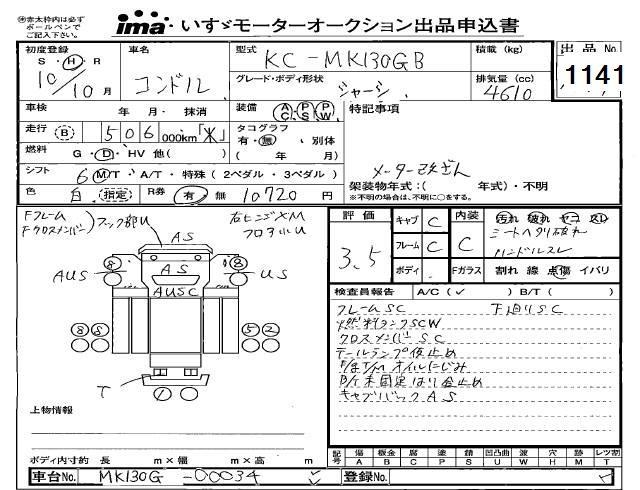 ※赤太枠内は必ず
ボールペンで
ご記入下さい。
ima いすゞモーターオークション出品申込書
初度登録
S・H・R
10/10月
車名
コンドル
型式
KC-MK130GB
積載 (kg)
出品 No.
1141
グレード・ボディ形状
シャーシ
排気量 (cc)
4610
車検 年 月・抹消
装備 AC PS PW
特記事項
走行 (B) 506 000km「米」
タコグラフ
有・無・別体
( 年 月)
燃料 G・D・HV 他( )
シフト 6 M/T・A/T・特殊 (2ペダル・3ペダル)
メーター改ざん
架装物年式:( 年式)・不明
※不明の場合は、不明に○をする。
色 白 (指定)
R券 有 無 10720 円
Fフレーム
Fクロスメンバー) フック部U
右ヒンジXM
フロア小U
AS
AS
AUSC
AUS
US
8
8
8 S
5 2
T
1
評価
3.5
キャブ C
フレーム C
ボディ
内装
C
Fガラス
汚れ 破れ ヤニ スレ
シートヘタリ破れ
ハンドルスレ
割れ 線 点傷 イバリ
検査員報告 A/C(✓) B/T( )
フレームSC
下回りSC
燃料タンクSCW
クロスメンバーSC
テールランプ仮止め
E/g T/M オイルにじみ
B/T未固定はり金止め
キャブバックAS
上物情報
ボディ内寸約 長 m×幅 m×高 m
記号 傷 A 板金 B 腐 C 塗 P 錆 S 凹凸曲 U 波 W 穴 H 跡 M レツ割 T
車台No. MK130G -00034
登録No.